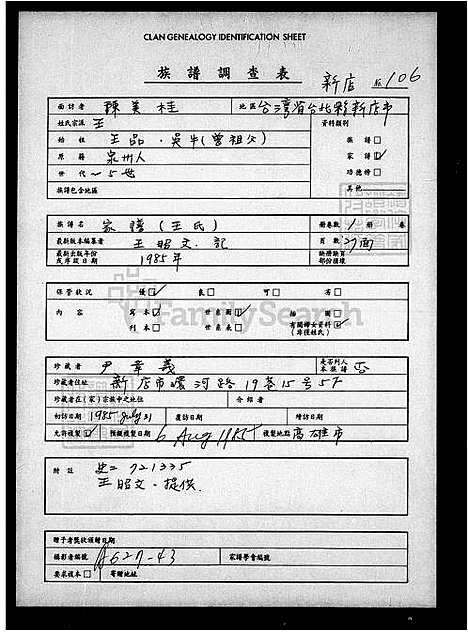 CLAN GENEALOGY IDENTIFICATION SHEET
族譜調查表
新店 No 106
面訪者 陳美桂 地區 台灣省台北縣新店市
姓氏宗派 王 資料類別
始祖 王品．吳牛(曾祖父) 族譜□
原籍 泉州人 家譜☑
世代 一5世 功德榜□
族譜包含地區 其他
族譜名 家譜(王氏) 冊卷數 1 冊 卷
最新版本編纂者 王昭文．記 頁數 27面
最新出版年份或序跋日期 1985年 缺冊缺頁部份損壞
保管狀況 優☑ 良□ 可□ 劣□
內容 寫本☑ 世系圖☑ 插圖□
刊本□ 世系表□ 有關譜系資料☑(非僅姓氏)
FamilySearch
珍藏者 尹章義 是否列入本族譜 否
珍藏者住址 新店市環河路19巷15号5F
珍藏者在(家)宗族中之地位 介紹者
初訪日期 1985 July 31 覆訪日期 續訪日期
允許複製☑ 預擬複製日期 6 Aug 1985 複製地點 高雄市
附註 史二 721335
王昭文．提供．
贈予者獎狀頒贈日期
攝影者編號 A627-43 家譜學會編號
要求複本□ 寄贈地址